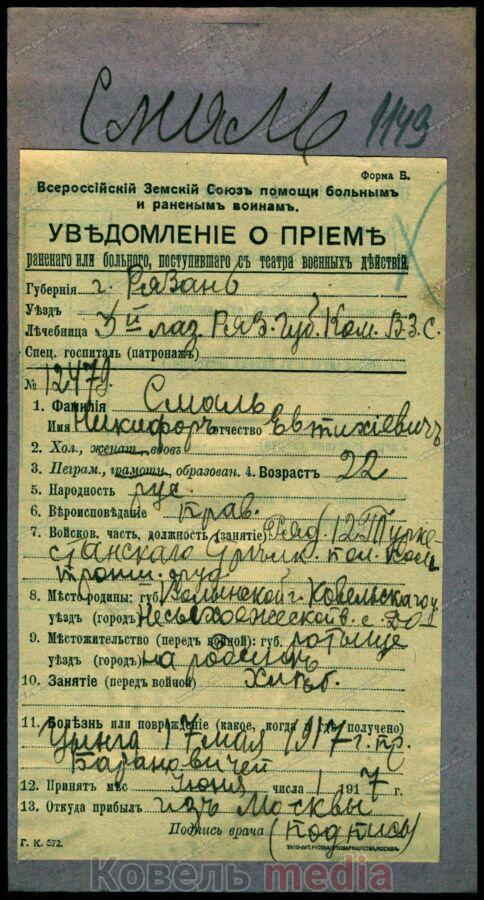 Смаль 1149
Форма Б.
Всероссійскій Земскій Союзъ помощи больнымъ
и раненымъ воинамъ.
УВѢДОМЛЕНІЕ О ПРІЕМѢ
раненаго или больного, поступившаго съ театра военныхъ дѣйствій.
Губернія г. Рязань
Уѣздъ
Лѣчебница 3й лаз. Ряз. Губ. Ком. В.З.С.
Спец. госпиталь (патронажъ)
№ 12479.
1. Фамилія Смаль
Имя Никифоръ отчество Евтихіевичъ
2. Хол., женат., вдовъ
3. Неграм., грамотн., образован. 4. Возрастъ 22
5. Народность рус
6. Вѣроисповѣданіе прав.
7. Войсков. часть, должность (занятіе) Ряд. 12 Турке-
станскаго
8. Мѣсто родины: губ. Волынской г. Ковельскаго у
уѣздъ (городъ)
9. Мѣстожительство (передъ войной): губ.
уѣздъ (городъ) на родинѣ
10. Занятіе (передъ войной) Хлѣб.
11. Болѣзнь или поврежденіе (какое, когда и гдѣ получено)
Цынга 17 мая 1917 г. пр.
Барановичей
12. Принятъ мѣс Іюня числа 1 1917 г.
13. Откуда прибылъ изъ Москвы
Подпись врача (подпись)
Г. К. 572. ТИПО-ЛИТ. РУССКАГО ТОВАРИЩЕСТВА, МОСКВА.
Ковель media